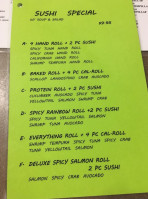 SUSHI SPECIAL
W/ SOUP & SALAD
A- 4 HAND ROLL + 2 PC SUSHI
SPICY TUNA HAND ROLL
SALMON HAND ROLL
CALIFORNIA HAND ROLL
SHRIMP TEMPURA HAND ROLL
B- BAKED ROLL + 4 PC CAL-ROLL
SCALLOP LANGOSTINO CRAB AVOCADO
C- PROTEIN ROLL + 2 PC SUSHI
CUCUMBER AVOCADO SPICY TUNA
TUNA YELLOWTAIL SALMON
D- SPICY RAINBOW ROLL +2 PC SUSHI
SPICY TUNA YELLOWTAIL SALMON
SHRIMP TUNA AVOCADO
E- EVERYTHING ROLL + 4 PC CAL-ROLL
SHRIMP TEMPURA SPICY TUNA SPICY CRAB
TUNA YELLOWTAIL SALMON
F- DELUXE SPICY SALMON ROLL
2 PC SUSHI
SALMON SPICY CRAB AVOCADO